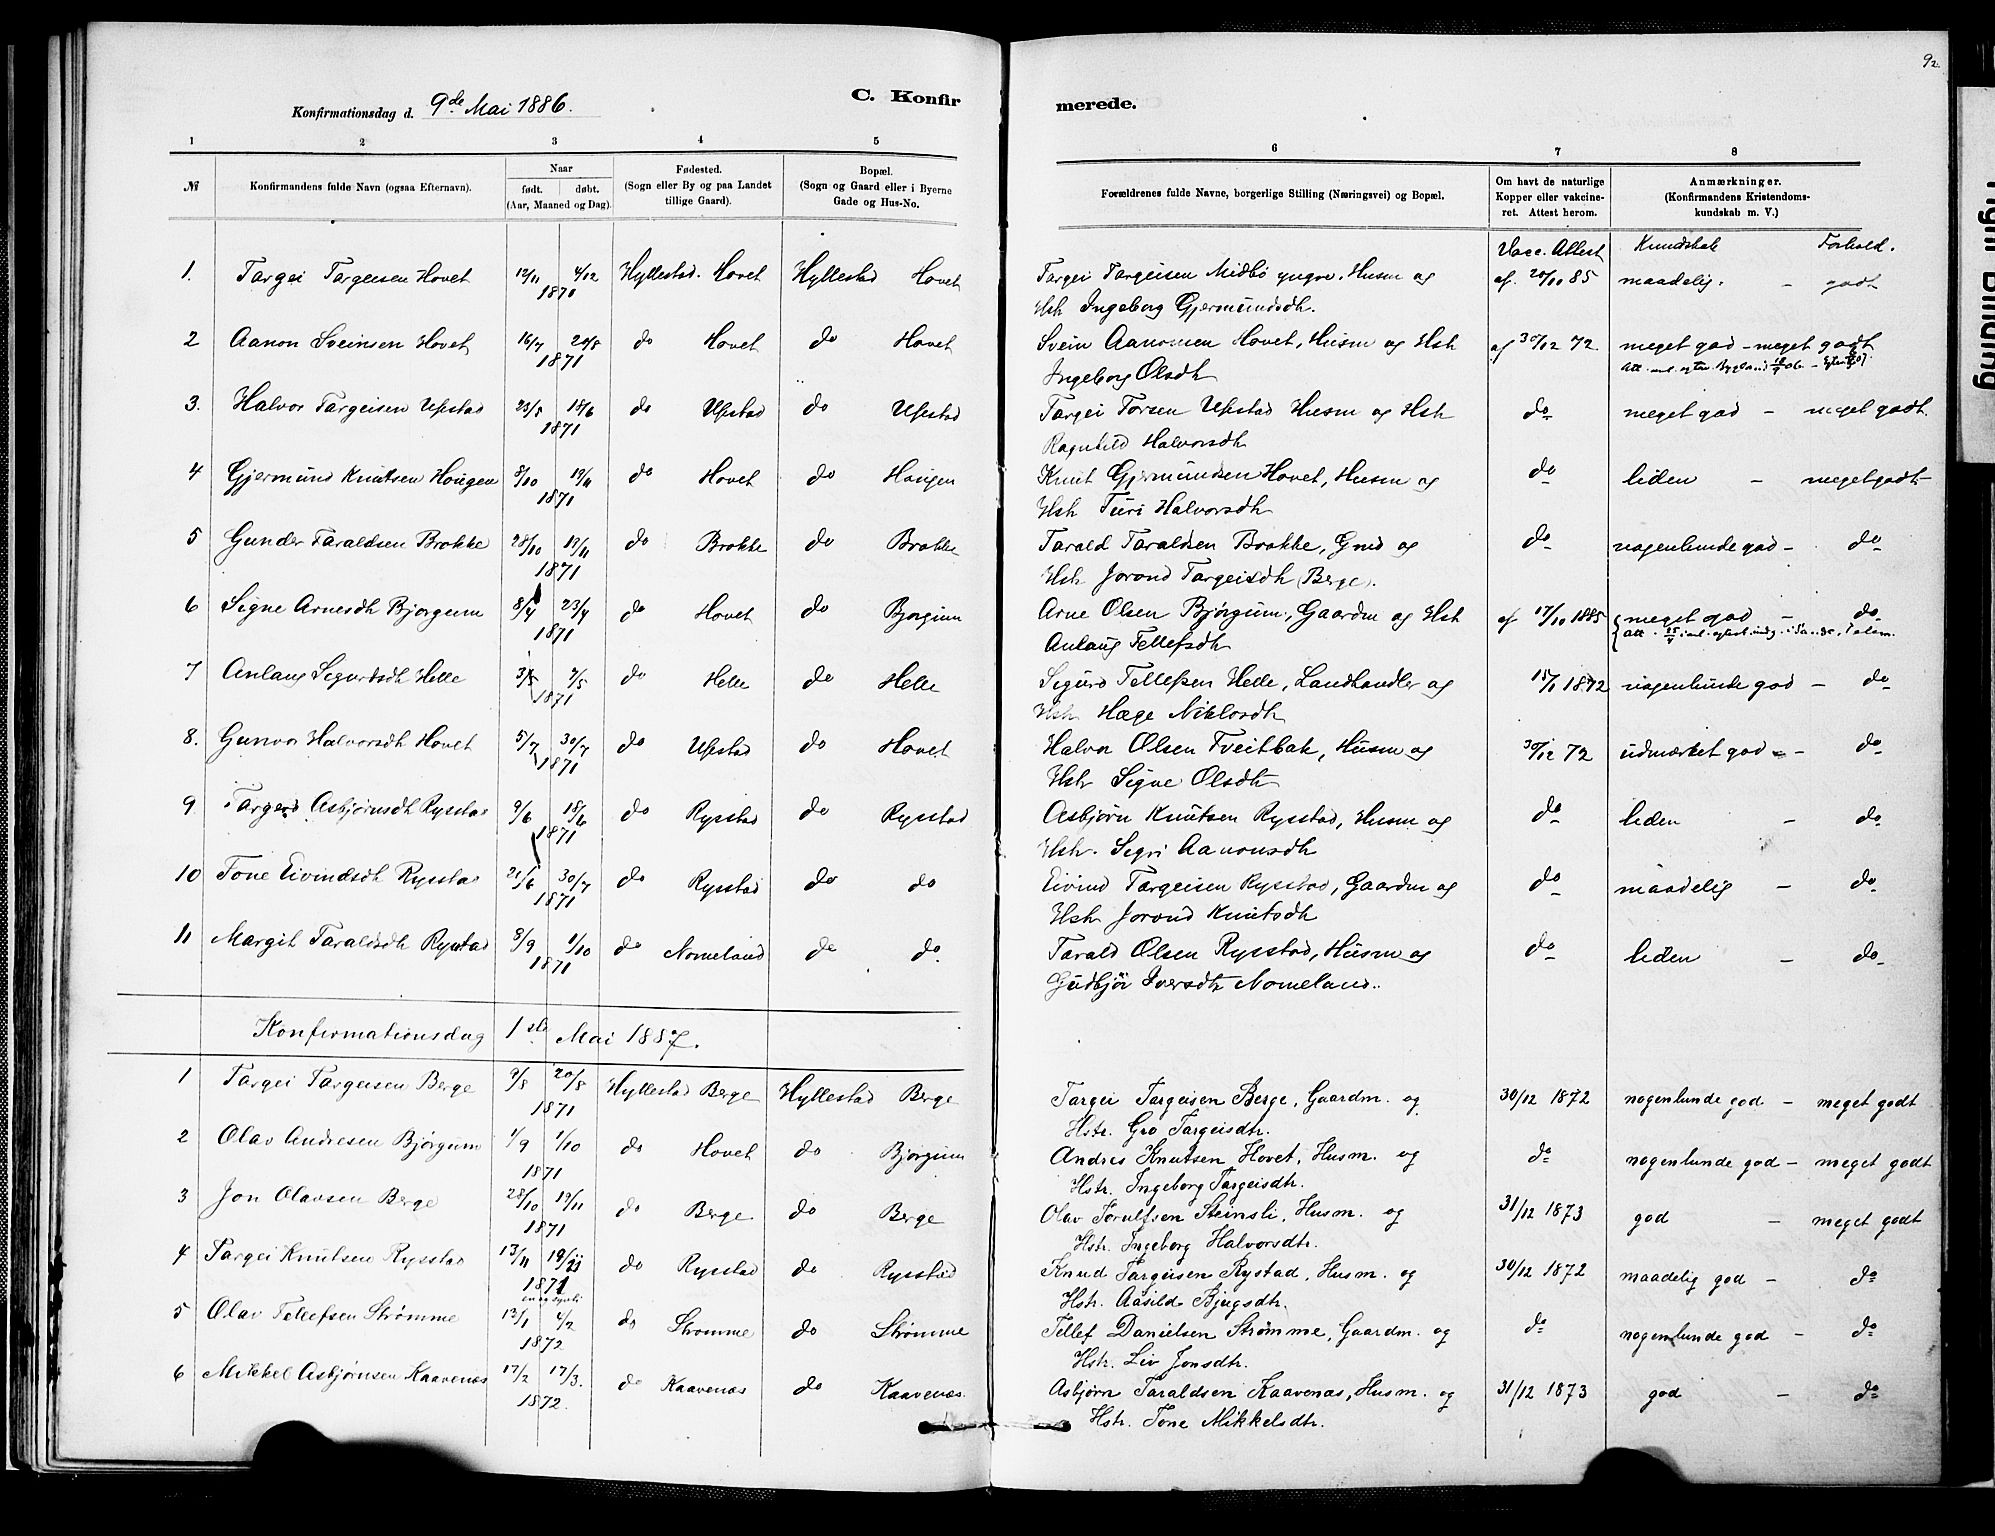 92.
Konfirmationsdag d. 9de Mai 1886.
C. Konfir merede.
1 2 3 4 5 6 7 8
№ Konfirmandens fulde Navn (ogsaa Efternavn). Naar født. døbt. (Aar, Maaned og Dag). Fødested. (Sogn eller By og paa Landet tillige Gaard). Bopæl. (Sogn og Gaard eller i Byerne Gade og Hus-No. Forældrenes fulde Navne, borgerlige Stilling (Næringsvei) og Bopæl. Om havt de naturlige Kopper eller vakcineret. Attest herom. Anmærkninger. (Konfirmandens Kristendomskundskab m. V.)
Vacc. Attest Kundskab Forhold.
1. Targei Targeisen Hovet 12/11 4/12 1870 Hyllestad. Hovet Hyllestad Hovet Targei Targeisen Midbö yngre. Husm og af. 20/10 85 maadelig. - godt
Hstr Ingeborg Gjermundsdtr.
2 Aanon Sveinsen Hovet 16/7 20/8 1871 do Hovet do Hovet Svein Aanonsen Hovet, Husm og Hstr af 30/12 72 meget god - meget godt
Ingeborg Olsdtr
3. Halvor Targeisen Upstad 23/5 18/6 1871 do Upstad do Upstad Targei Torsen Upstad Husm og Hstr do meget god - meget godt.
Ragnhild Halvorsdtr
4 Gjermund Knutsen Hougen 8/10 19/11 1871 do Hovet do Hougen Knut Gjermundsen Hovet, Husm og do liden - meget godt
Hstr Turi Halvorsdtr
5 Gunder Taraldsen Brokke 28/10 19/11 1871 do Brokke do Brokke Tarald Taraldsen Brokke, Gmd og do nogenlunde god - do
Hstr Jorond Targeisdtr (Berge).
6 Signe Arnesdtr Bjørgum 8/4 23/4 1871 do Hovet do Bjorgum Arne Olsen Bjørgum, Gaardm og Hstr af 17/10 1885 meget god - do
Anlaug Tellefsdtr
7 Anlaug Sigurdsdtr Helle 3/5 7/5 1871 do Helle do Helle Sigurd Tellefsen Helle, Landhandler og 15/1 1872 nogenlunde god - do
Hstr Hæge Niklosdtr
8. Gunvor Halvorsdtr Hovet 5/7 30/7 1871 do Upstad do Hovet Halvor Olsen Tveitbak, Husm og 30/12 72 udmærket god - do
Hstr Signe Olsdtr
9 Asbjørnsdtr Rysstad 9/6 18/6 1871 do Rysstad do Rysstad Asbjörn Knutsen Rysstad, Husm og do liden - do
Hstr. Sigri Aanonsdtr
10 Tone Eivindsdtr Rysstad 21/6 30/7 1871 do Rysstad do do Eivind Targeisen Rysstad, Gaardm og do maadelig - do
Hstr Jorond Knutsdtr
11 Margit Taraldsdtr Rysstad 8/9 1/10 1871 do Nomeland do do Tarald Olsen Rysstad, Husm og do liden - do
Gudbjör Iversdtr Nomeland.
Konfirmationsdag 1ste Mai 1887.
1 Targei Targeisen Berge 9/8 20/8 1871 Hyllestad Berge Hyllestad Berge Targei Targeisen Berge, Gaardm. og 30/12 1872 nogenlunde god - meget godt
Hstr. Gro Targeisdtr.
2 Olav Andresen Bjørgum 1/9 1/10 1871 do Hovet do Bjørgum Andres Knutsen Hovet, Husm. og do nogenlunde god - meget godt
Hstr. Ingeborg Targeisdtr.
3 Jon Olavsen Berge 28/10 19/11 1871 do Berge do Berge Olav Torulfsen Steinsli, Husm. og 31/12 1873 god - meget godt
Hstr. Ingeborg Halvorsdtr.
4 Targei Knutsen Rysstad 13/11 19/11 1871 do Rysstad do Rysstad Knud Targeisen Rystad, Husm. og 30/12 1872 maadelig god - do
Hstr. Aasild Bjugsdtr.
5 Olav Tellefsen Strømme 13/1 4/2 1872 do Strømme do Strømme Tellef Danielsen Strømme, Gaardm. og do nogenlunde god - do
Hstr. Liv Jonsdtr.
6 Mikkel Asbjørnsen Kaavenæs 17/2 17/3. 1872. do Kaavenæs do Kaavenæs. Asbjørn Taraldsen Kaavenæs, Husm. og 31/12 1873 god - do
Hstr. Tone Mikkelsdtr.